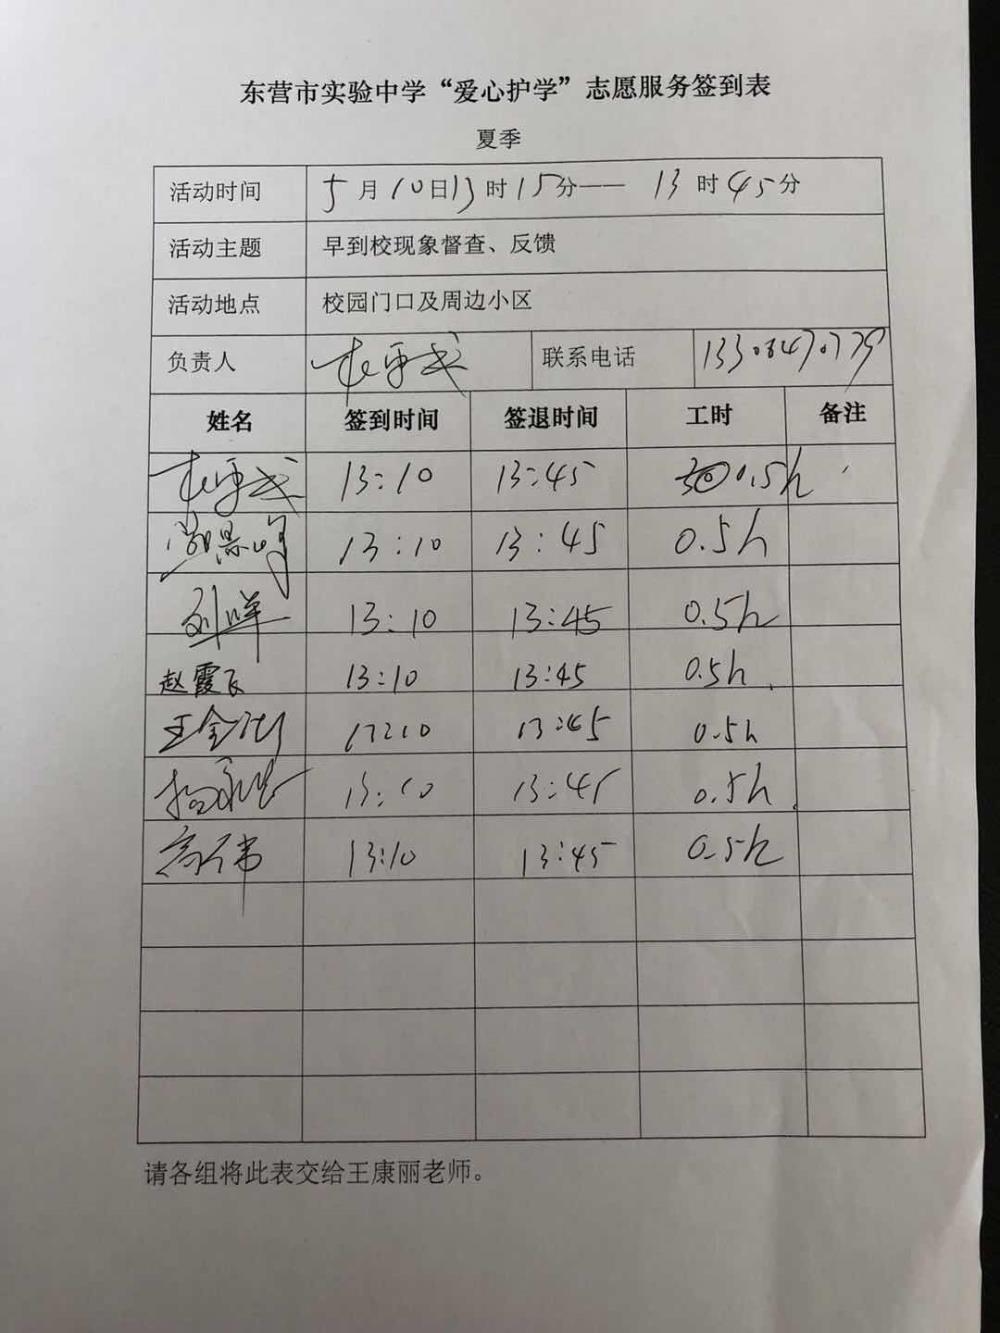 东营市实验中学“爱心护学”志愿服务签到表
夏季
活动时间 5月10日13时15分—— 13时45分
活动主题 早到校现象督查、反馈
活动地点 校园门口及周边小区
负责人 联系电话
姓名 签到时间 签退时间 工时 备注
13:10 13:45 0.5h
13:10 13:45 0.5h
刘晖 13:10 13:45 0.5h
赵霞飞 13:10 13:45 0.5h
13:10 13:45 0.5h
13:10 13:45 0.5h
高伟 13:10 13:45 0.5h
请各组将此表交给王康丽老师。